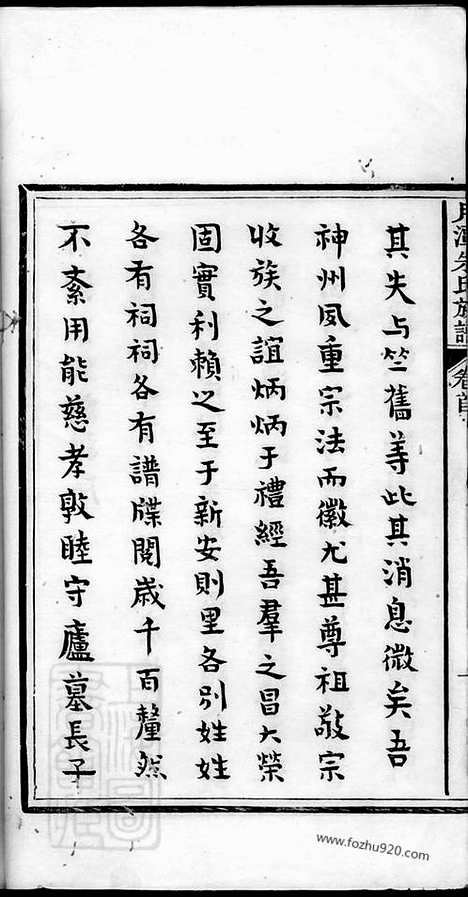 其失与竺舊等此其消息微矣吾
神州風重宗法而徽尤甚尊祖敬宗
收族之誼炳炳于禮經吾羣之昌大榮
固實利賴之至于新安則里各別姓姓
各有祠祠各有譜牒閱歲千百釐然
不紊用能慈孝敦睦守廬墓長子
朱氏族譜
卷首
www.fozhu920.com